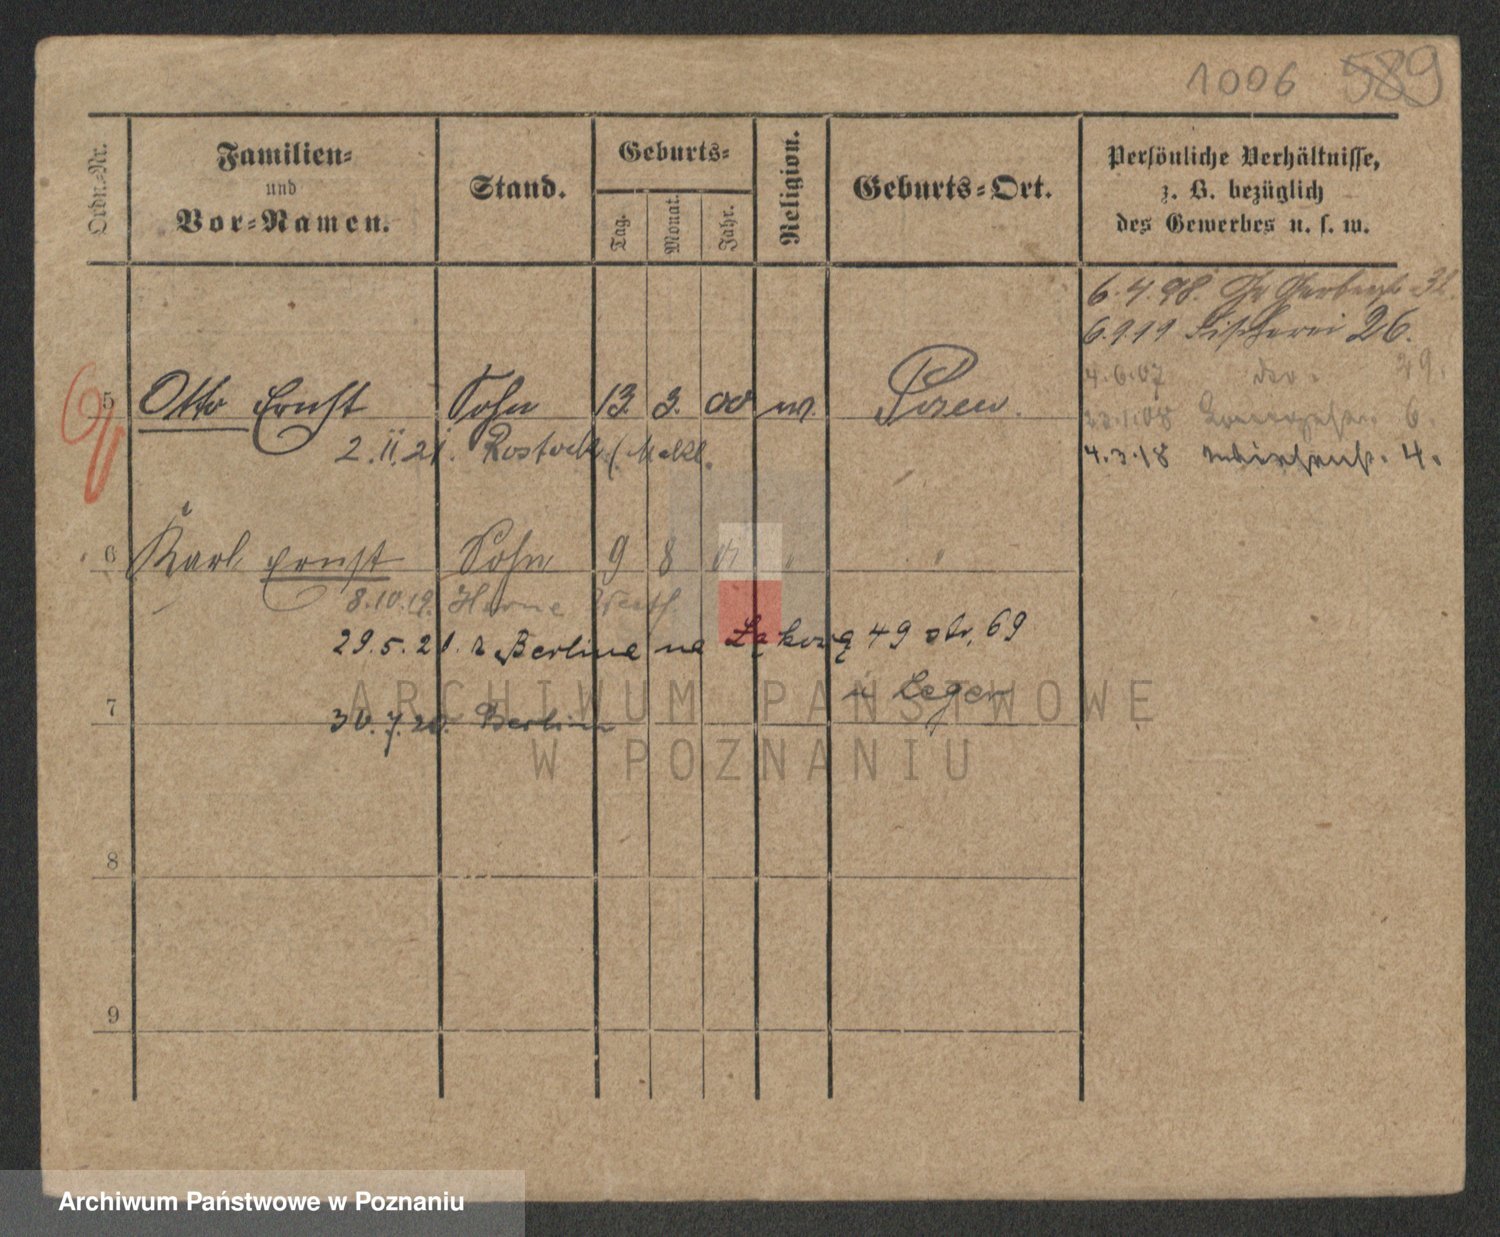 1006 589
Ordn.-Nr.
Familien-
und
Vor-Namen.
Stand.
Geburts-
Tag.
Monat.
Jahr.
Religion.
Geburts-Ort.
Persönliche Verhältnisse,
z. B. bezüglich
des Gewerbes u. s. w.
6.4.98. Gr Gerberstr 32.
6.9.99 Fischerei 26.
4.6.07 39.
23.1.08 6.
4.3.18 4.
5 Otto Ernst Sohn 13. 3. 00 Posen.
2.II.21. Rostock (Mekl.
6 Karl Ernst Sohn 9 8 " "
8.10.19. Herne Westf.
29.5.21. z Berlina na Łąkową 49 str. 69
u Leger
7
30.7.20. Berlin
8
9
ARCHIWUM PAŃSTWOWE
W POZNANIU
Archiwum Państwowe w Poznaniu